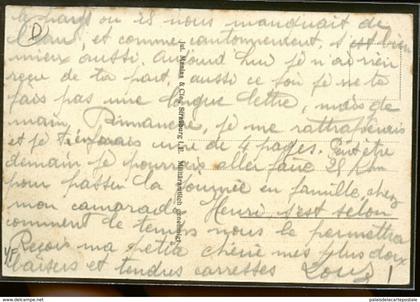 le pays où ils nous manquait de
l'eau, et comme cantonnement, c'est bien
mieux aussi. Aujourd'hui je n'ai rien
reçu de ta part, aussi ce soir je ne te
fais pas une longue lettre, mais de
main, Dimanche, je me rattraperais
et je t'en ferais une de 4 pages. Peut être
demain je pourrais aller faire 28 km
pour passer la journée en famille, chez
mon camarade Henri, c'est selon
comment le temps nous le permettra
Reçois ma petite chérie mes plus doux
baisers et tendres caresses Louis
D